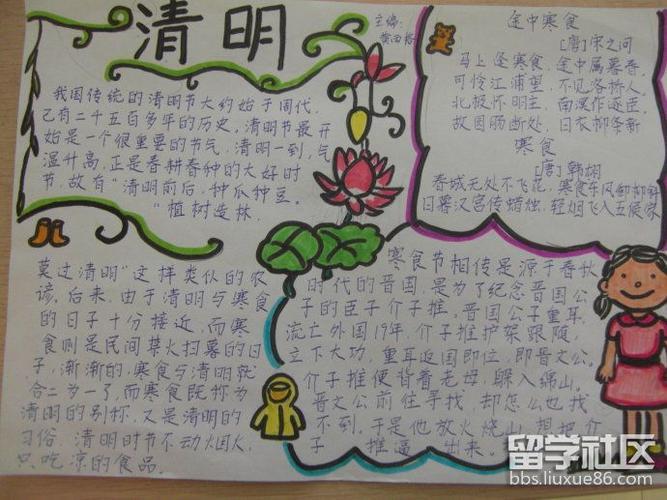 清明
主编:
我国传统的清明节大约始于周代,
已有二十五百多年的历史。清明节最开
始是一个很重要的节气,清明一到,气
温升高,正是春耕春种的大好时
节,故有"清明前后,种瓜种豆。
"植树造林,
莫过清明"这样类似的农
谚。后来,由于清明与寒食
的日子十分接近,而寒
食则是民间禁火扫墓的日
子,渐渐的,寒食与清明就
合二为一了,而寒食既称为
清明的别称,又是清明的
习俗,清明时节不动烟火,
只吃凉的食品。
途中寒食
[唐]宋之问
马上逢寒食,途中属暮春
可怜江浦望,不见洛桥人,
北极怀明主,南溟作逐臣,
故园肠断处,日夜柳条新
寒食
[唐]韩翃
春城无处不飞花,寒食东风御柳斜
日暮汉宫传蜡烛,轻烟飞入五侯家
寒食节相传是源于春秋
时代的晋国,是为了纪念晋国公
子的臣子介子推,晋国公子重耳,
流亡外国19年,介子推护驾跟随,
立下大功,重耳返国即位,即晋文公,
介子推便背着老母,躲入绵山。
晋文公前往寻找,却怎么也找
不到,于是他放火烧山,想把介
子推逼出来。
留学社区
bbs.liuxue86.com